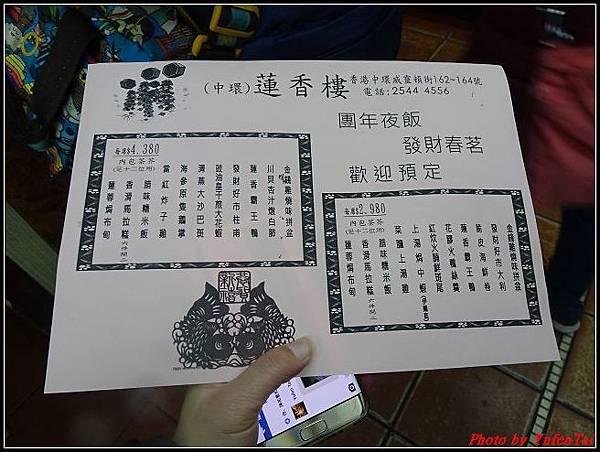 (中環) 蓮香樓
香港中環威靈頓街162-164號
電話:2544 4556
團年夜飯
發財春茗
歡迎預定
每席$4,380
內包茶芥
(足十二位用)
金錢雞燒味拼盆
川貝杏汁燉白肺
蓮香霸王鴨
發財好市柱甫
豉油皇干煎大花蝦
清蒸大沙巴斑
海參原隻鵝掌
當紅炸子雞
腊味糯米飯
香滑馬拉糕
蓮蓉焗布甸
每席$2,980
內包茶芥
(足十二位用)
金錢雞燒味拼盆
發財好市大利
脆皮海鮮卷
蓮香霸王鴨
花膠火鴨絲羹
紅炆火腩鮮斑尾
上湯焗中蝦
菜膽上湯雞
腊味糯米飯
香滑馬拉糕
蓮蓉焗布甸
Photo by YufenTai